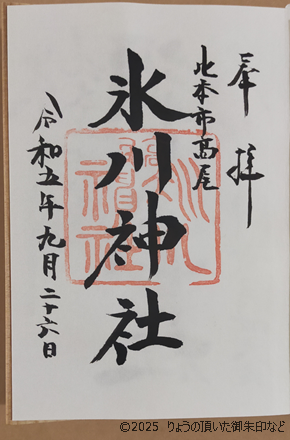 奉拝
北本市高尾
氷川神社
令和五年九月二十六日
©2025 りょうの頂いた御朱印など